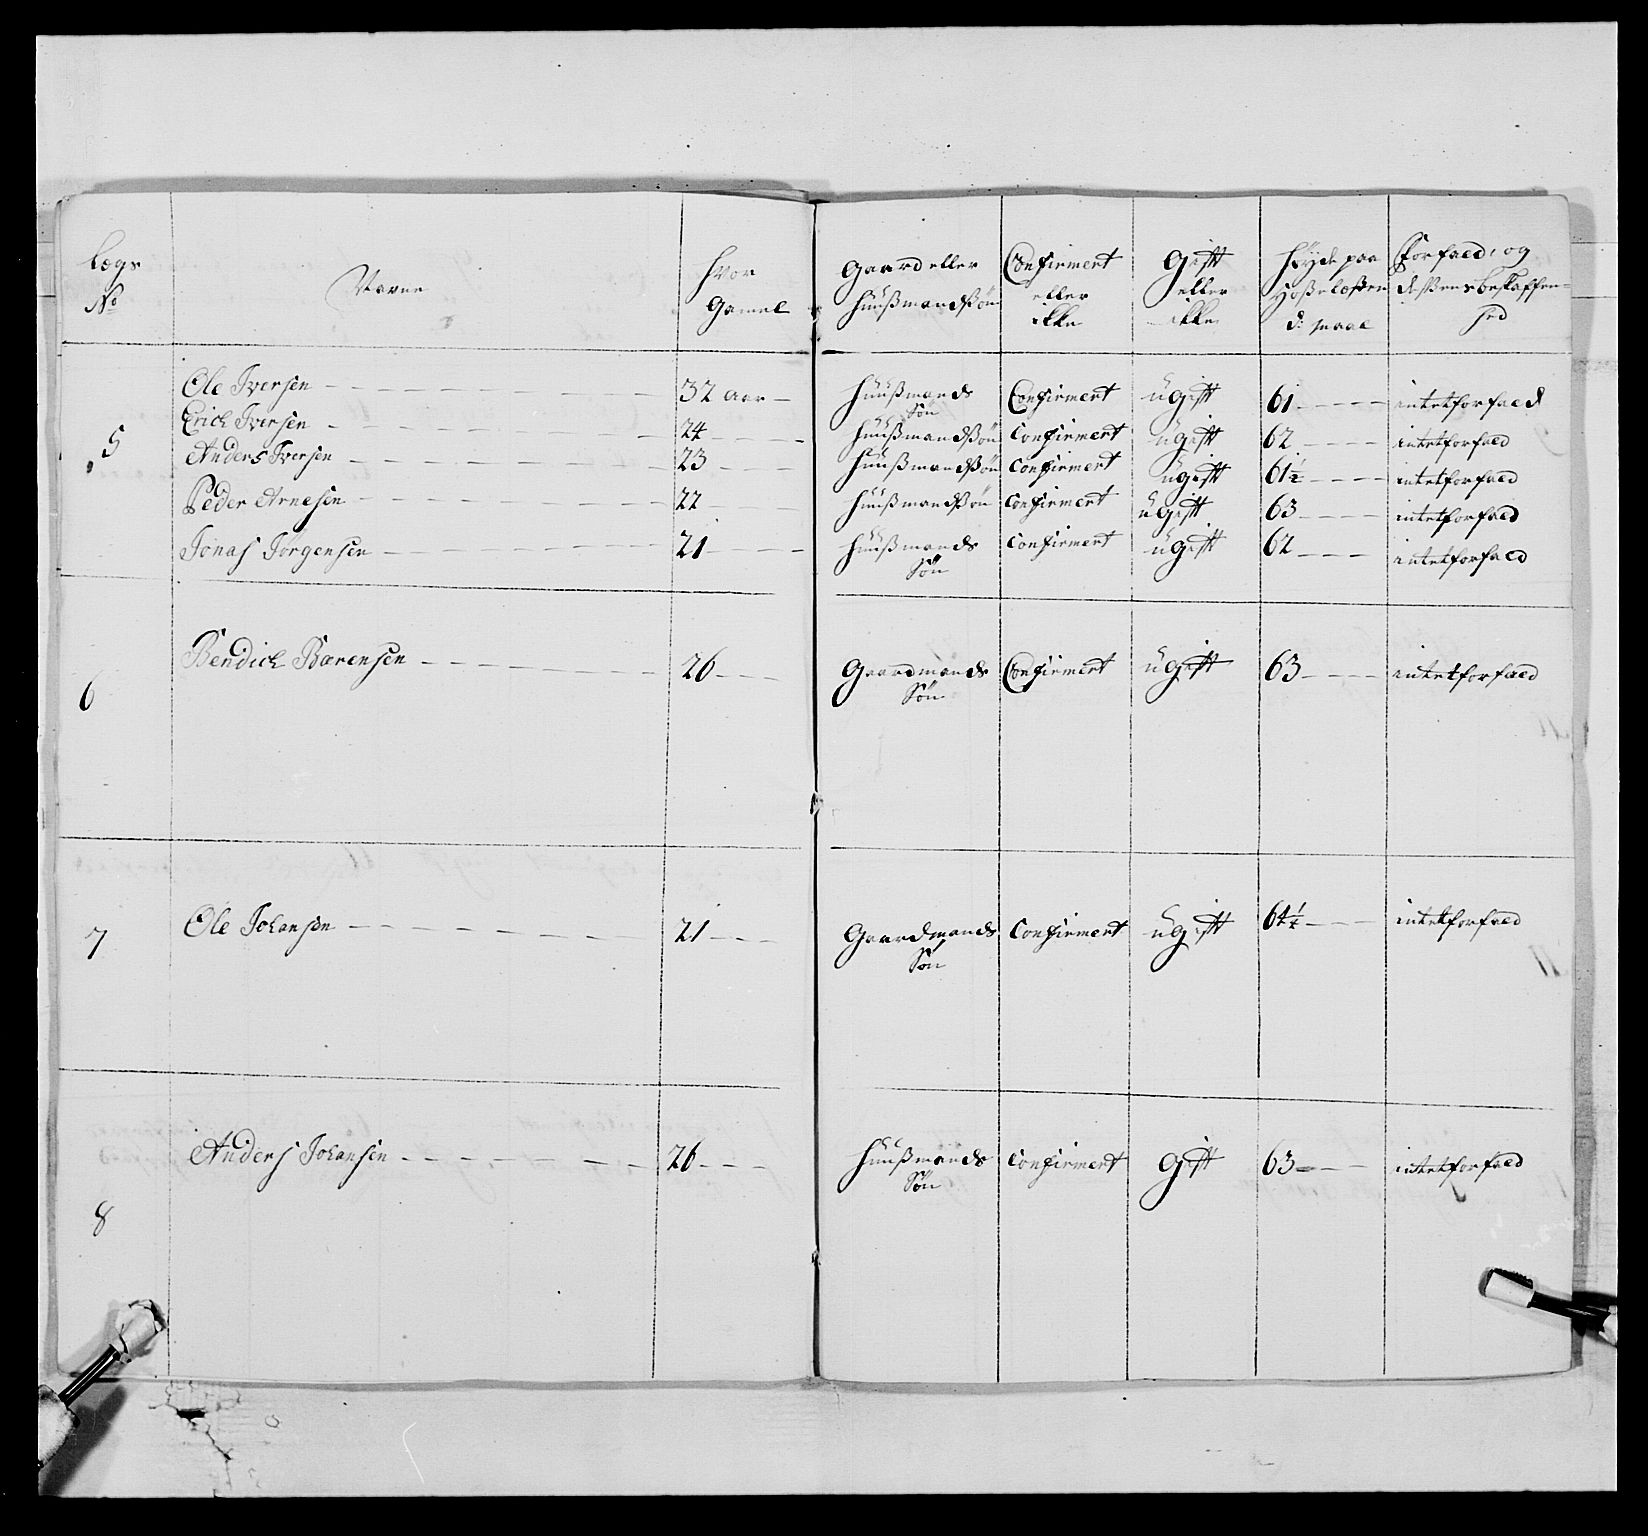 Lægs No | Navne | hvor Gamel | Gaard eller Huusmandssøn | Confirmert eller ikke | Gift eller ikke | Høyde paa Hosselæsten d: maal | Forfald, og dessens beskaffenhed
5 | Ole Iversen | 32 aar | Huusmands Søn | Confirmert | ugift | 61 | intet forfald
Erich Iversen | 24 | Huusmandssøn | Confirmert | ugift | 62 | intet forfald
Anders Iversen | 23 | Huusmandssøn | Confirmert | ugift | 61½ | intet forfald
Peder Arnesen | 22 | Huusmandssøn | Confirmert | ugift | 63 | intet forfald
Jonas Jørgensen | 21 | Huusmands Søn | Confirmert | ugift | 62 | intet forfald
6 | Bendich Barensen | 26 | Gaardmands Søn | Confirmert | ugift | 63 | intet forfald
7 | Ole Johansen | 21 | Gaardmands Søn | Confirmert | ugift | intet forfald
8 | Anders Johansen | 26 | Huusmands Søn | Confirmert | Gift | 63 | intet forfald